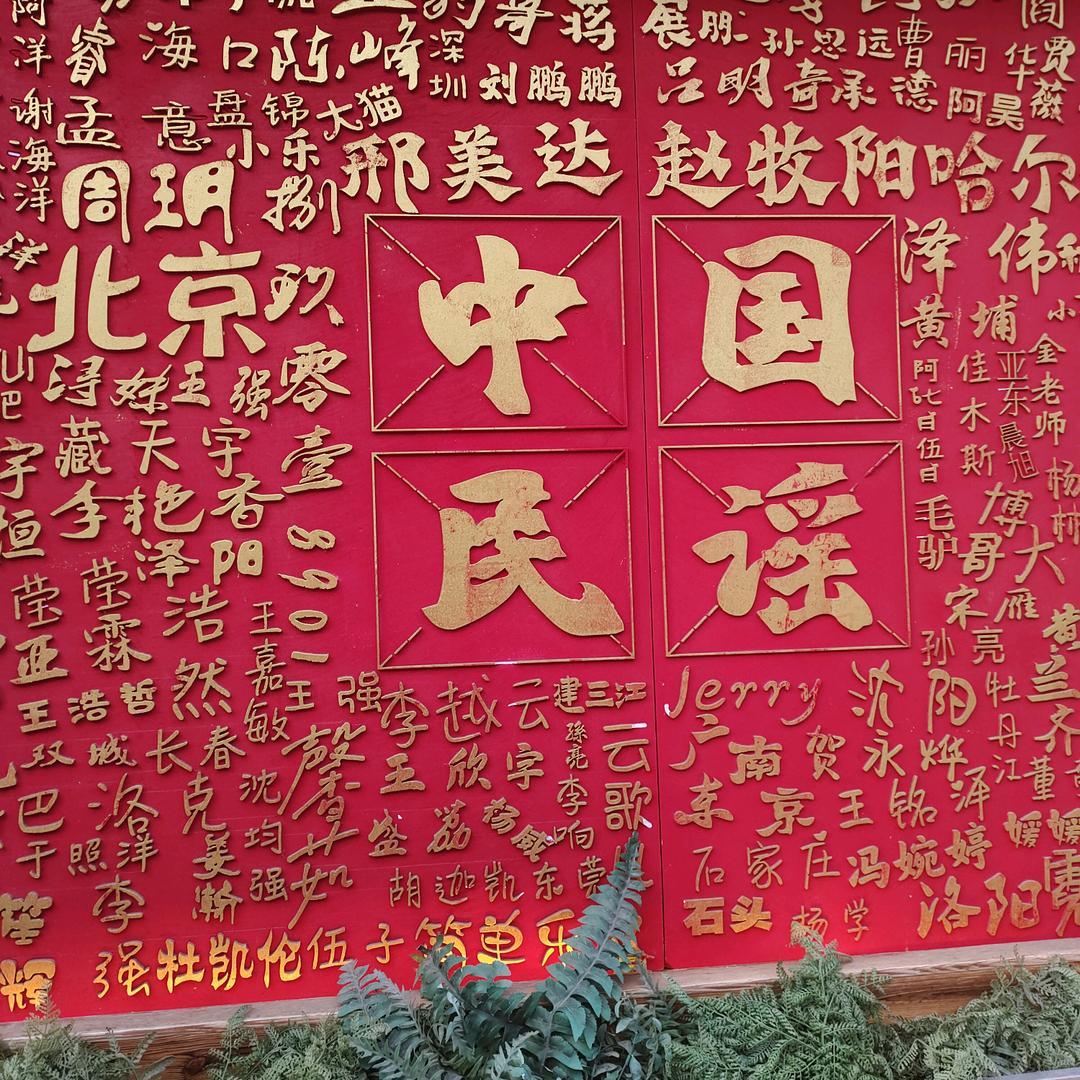 海口 陈 峰 深圳 哥 蒋
展朋 孙思远 曹 丽 华 贾薇
洋 睿 刘鹏鹏 吕明奇承德 阿昊
谢海洋 孟 意 盘 锦 大猫
小乐
周玥 捌 邢美达 赵牧阳哈尔
北京 玖 中国 泽 伟
黄 埔 小金老师
浔 王强 零 阿 佳木斯 亚东 晨旭
藏天宇 壹 伍
宇恒 李艳香 民谣 毛驴 博哥 大雁 杨林
泽阳 8901
莹 莹霖 浩然 王嘉敏 宋 孙亮
亚 王浩哲 王强 李越云 建三江 Jerry 沈阳 牡丹江 黄兰
双城 长春 馨 王欣宇 孫亮 云歌 广东 南京 贺 永烨 齐
巴 洛洋 克 沈均强 芷如 盛荔 杨威 李响 王铭泽 董
于照 李 姜瀚 胡迦凯 东莞 石家庄 冯婉婷 媛媛
笙 石头 杨学 洛阳 霓
辉 强牡凯伦伍子简单乐